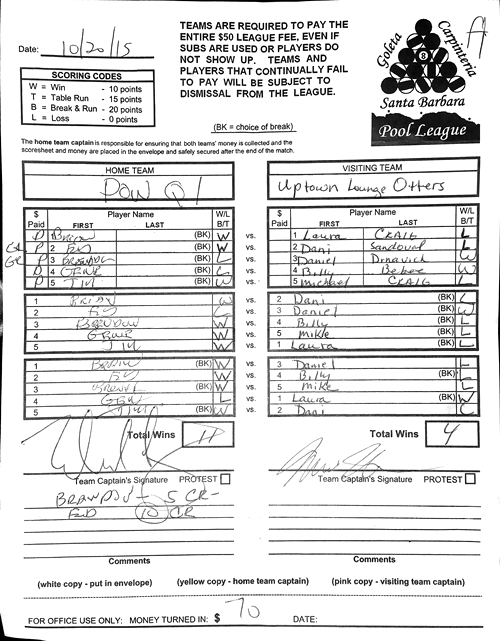 Date: 10/20/15
TEAMS ARE REQUIRED TO PAY THE
ENTIRE $50 LEAGUE FEE, EVEN IF
SUBS ARE USED OR PLAYERS DO
NOT SHOW UP. TEAMS AND
PLAYERS THAT CONTINUALLY FAIL
TO PAY WILL BE SUBJECT TO
DISMISSAL FROM THE LEAGUE.
(BK = choice of break)
A
Goleta
Carpinteria
8
Santa Barbara
Pool League
SCORING CODES
W = Win - 10 points
T = Table Run - 15 points
B = Break & Run - 20 points
L = Loss - 0 points
The home team captain is responsible for ensuring that both teams' money is collected and the
scoresheet and money are placed in the envelope and safely secured after the end of the match.
HOME TEAM
VISITING TEAM
Uptown Lounge Otters
$ Paid Player Name FIRST LAST W/L B/T
$ Paid Player Name FIRST LAST W/L B/T
1 (BK) W vs. 1 Laura CRAIG L
P 2 W vs. 2 Dani Sandoval (BK) L
P 3 (BK) L vs. 3 Daniel W
4 L vs. 4 Billy (BK) W
5 JIM (BK) W vs. 5 Michael CRAIG L
1 vs. 2 Dani (BK) L
2 vs. 3 Daniel (BK) W
3 BRANDON W vs. 4 Billy (BK) L
4 W vs. 5 Mike (BK) L
5 JIM W vs. 1 Laura (BK) L
1 (BK) W vs. 3 Daniel L
2 W vs. 4 Billy (BK) L
3 (BK) W vs. 5 Mike L
4 L vs. 1 Laura (BK) W
5 JIM (BK) W vs. 2 Dani L
Total Wins 11
Total Wins 4
Team Captain's Signature PROTEST
Team Captain's Signature PROTEST
BRANDON - 5 CR-
10 CR
Comments
Comments
(white copy - put in envelope) (yellow copy - home team captain) (pink copy - visiting team captain)
FOR OFFICE USE ONLY: MONEY TURNED IN: $ 70 DATE: